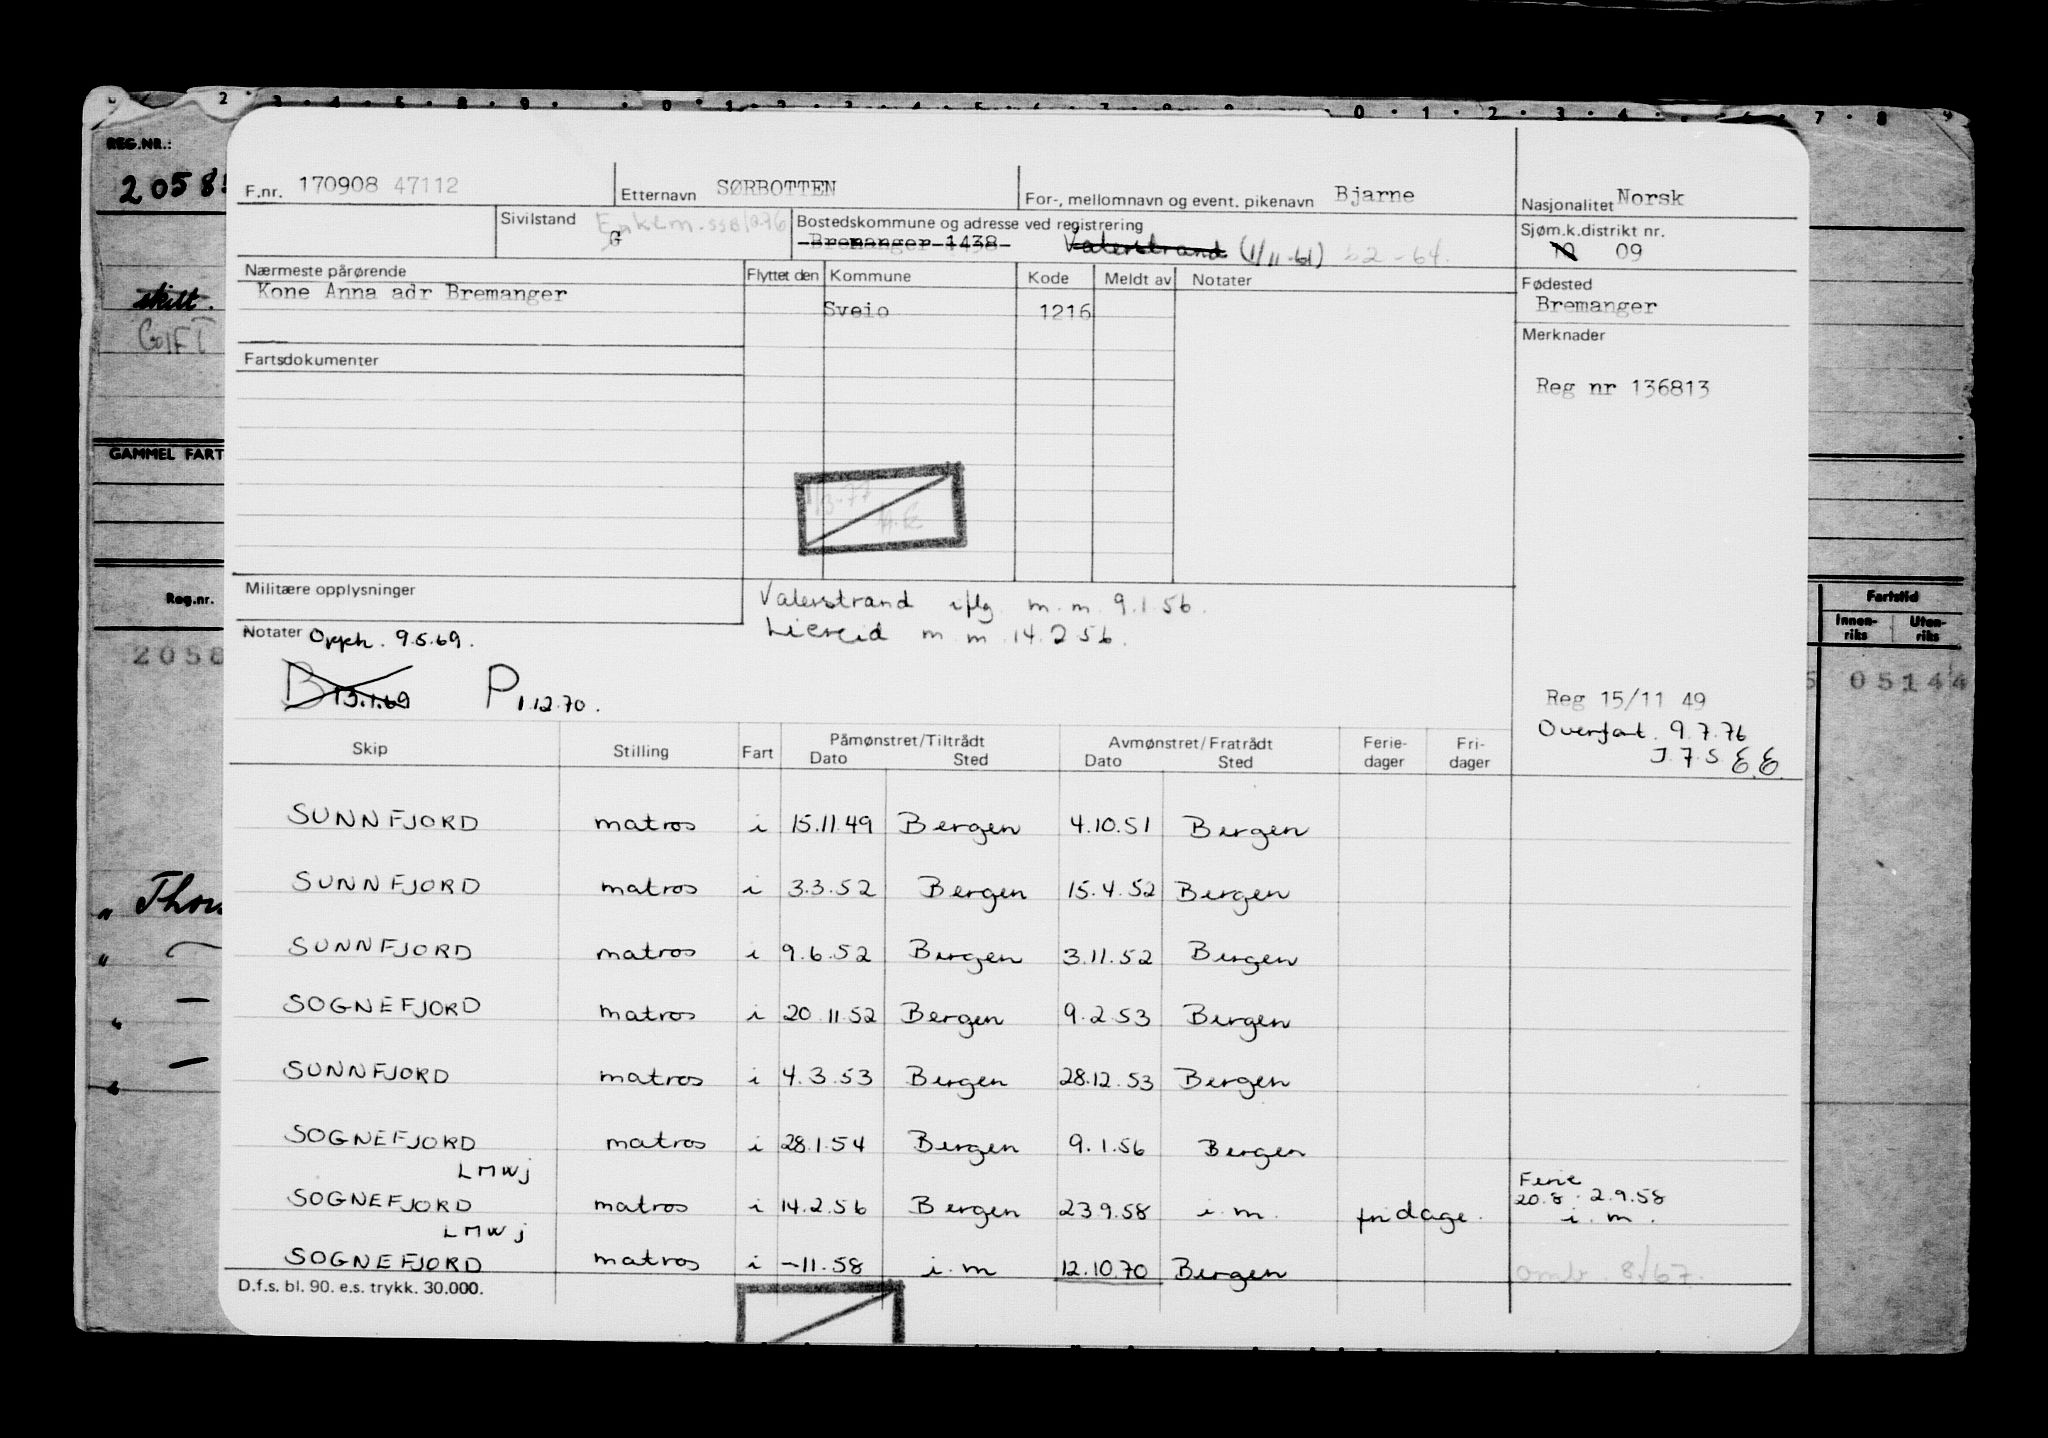 REG.NR.:
2058
F.nr. 170908 47112
Etternavn SØRBOTTEN
For-, mellomnavn og event. pikenavn Bjarne
Nasjonalitet Norsk
Sivilstand Enkem. SSB/276
G
Bostedskommune og adresse ved registrering
Bremanger 1438 Valerstrand (1/11-61) 52-64.
Sjøm.k.distrikt nr.
09
Nærmeste pårørende
Kone Anna adr Bremanger
Flyttet den Kommune Kode Meldt av Notater
Sveio 1216
Fødested
Bremanger
skilt.
GIFT
Merknader
Reg nr 136813
Fartsdokumenter
GAMMEL FART
1/3-77
Militære opplysninger
Valerstrand iflg. m.m. 9.1.56.
Liereid m.m. 14.2.56.
Notater Opph. 9.5.69.
B 13.1.69 P 1.12.70.
Reg.nr.
2058
Fartstid
Innen-riks Uten-riks
5 05144
Reg 15/11 49
Overfart. 9.7.76
J.7.S. EE
Skip Stilling Fart Påmønstret/Tiltrådt Dato Sted Avmønstret/Fratrådt Dato Sted Ferie-dager Fri-dager
SUNNFJORD matros i 15.11.49 Bergen 4.10.51 Bergen
SUNNFJORD matros i 3.3.52 Bergen 15.4.52 Bergen
SUNNFJORD matros i 9.6.52 Bergen 3.11.52 Bergen
SOGNEFJORD matros i 20.11.52 Bergen 9.2.53 Bergen
SUNNFJORD matros i 4.3.53 Bergen 28.12.53 Bergen
SOGNEFJORD matros i 28.1.54 Bergen 9.1.56 Bergen
LMWJ
SOGNEFJORD matros i 14.2.56 Bergen 23.9.58 i.m. fridage. Ferie 20.8 - 2.9.58 i.m.
LMWJ
SOGNEFJORD matros i -11.58 i.m 12.10.70 Bergen omb. 8/67.
D.f.s. bl. 90. e.s. trykk. 30.000.